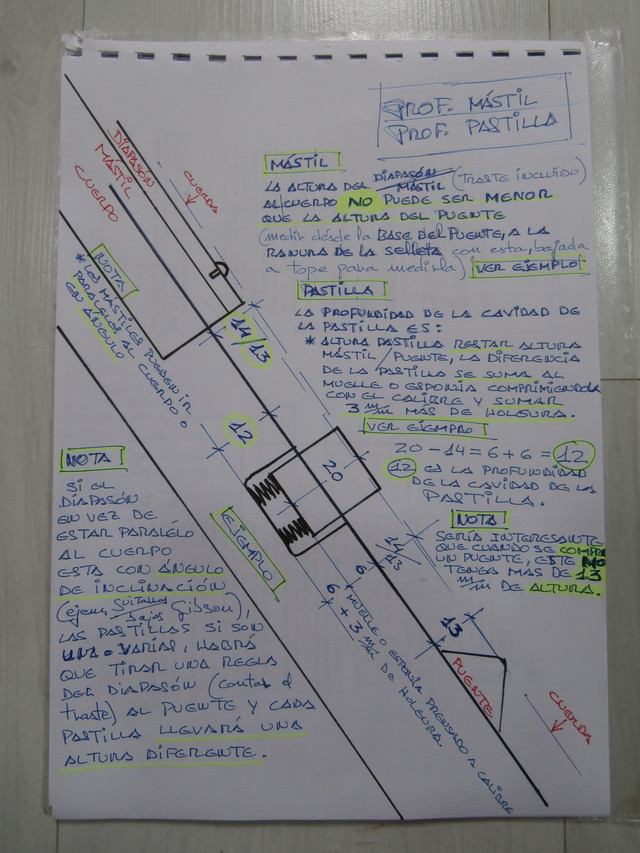 PROF. MÁSTIL
PROF. PASTILLA
DIAPASÓN
MÁSTIL
CUERPO
CUERDA
MÁSTIL
LA ALTURA DEL DIAPASÓN MÁSTIL (TRASTE INCLUIDO)
AL CUERPO NO PUEDE SER MENOR
QUE LA ALTURA DEL PUENTE
(medir désde la BASE DEL PUENTE, A LA
RANURA DE LA SELLETA con esta, bajada
a tope para medirla) VER EJEMPLO
PASTILLA
LA PROFUNDIDAD DE LA CAVIDAD DE
LA PASTILLA ES:
* ALTURA PASTILLA RESTAR ALTURA
MÁSTIL / PUENTE, LA DIFERENCIA
DE LA PASTILLA SE SUMA AL
MUELLE O ESPONJA COMPRIMIENDOLA
CON EL CALIBRE Y SUMAR
3 m/m MÁS DE HOLGURA.
VER EJEMPRO
20 - 14 = 6 + 6 = 12
12 ES LA PROFUNDIDAD
DE LA CAVIDAD DE LAS
PASTILLA.
NOTA!
SERÍA INTERESANTE
QUE CUANDO SE COMPRA
UN PUENTE, ESTE NO
TENGA MÁS DE 13
m/m DE ALTURA.
NOTA
* LOS MÁSTILES PUEDEN IR
PARALELOS AL CUERPO O
EN ÁNGULO
14/13
12
20
EJEMPLO
14/13
6
6 + 3 m/m DE HOLGURA.
MUELLE O ESPONJA PRENSADO A CALIBRE
13
PUENTE
CUERDA
NOTA
SI EL
DIAPASÓN
EN VEZ DE
ESTAR PARALÉLO
AL CUERPO
ESTA CON ÁNGULO
DE INCLINACIÓN
(ejem, Guitarras Bajos Gibson),
LAS PASTILLAS SI SON
UNA O VARIAS, HABRÁ
QUE TIRAR UNA REGLA
DEL DIAPASÓN (contar el
traste) AL PUENTE Y CADA
PASTILLA LLEVARÁ UNA
ALTURA DIFERENTE.